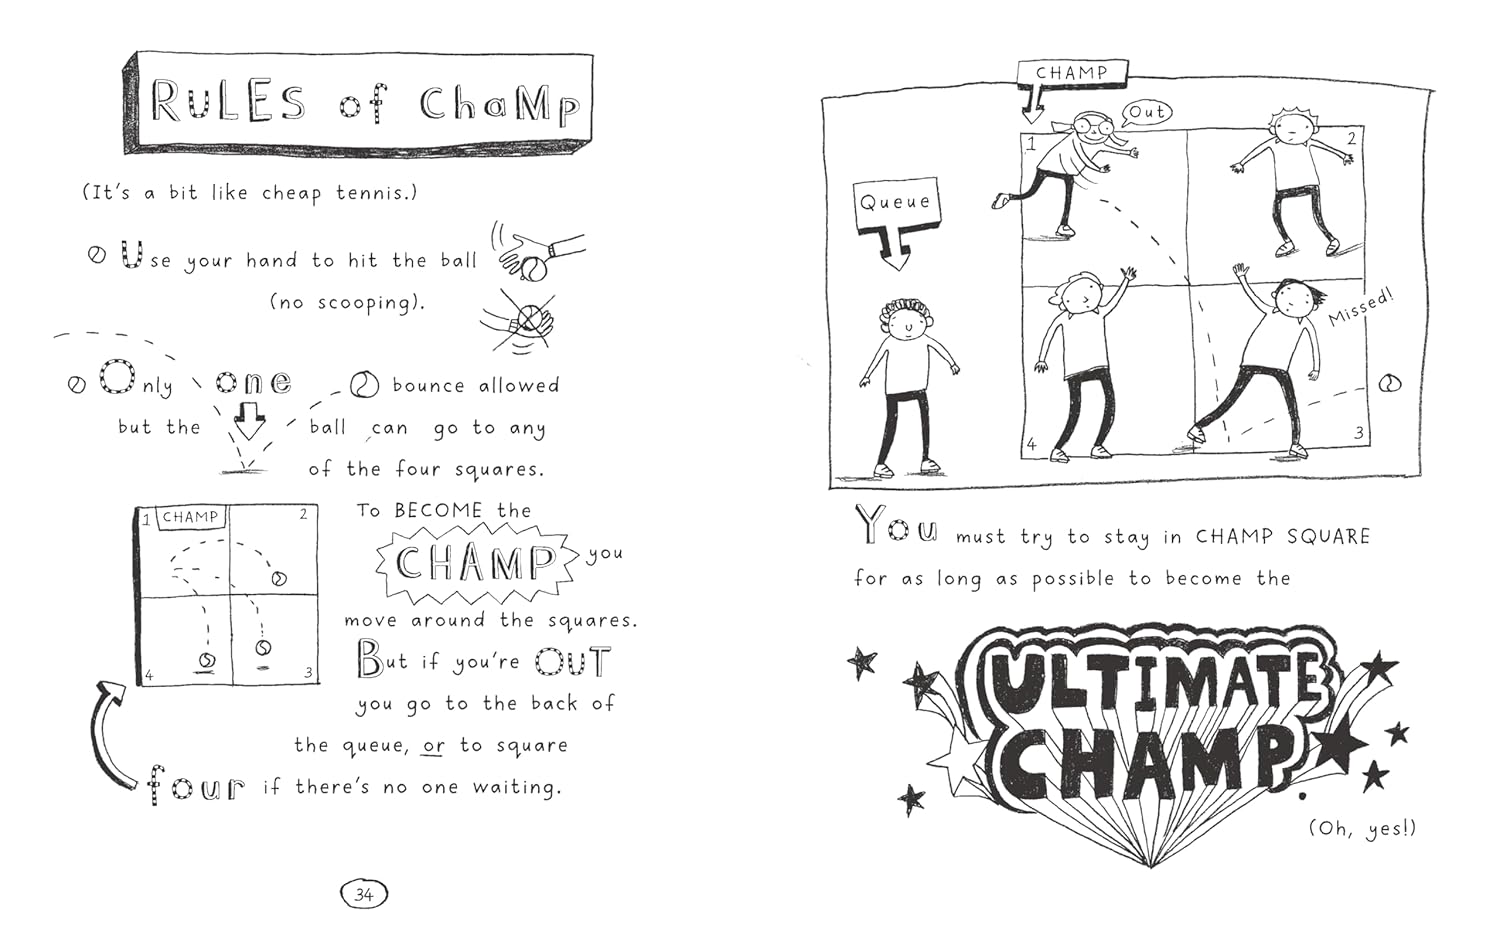 RULES of ChaMp
(It's a bit like cheap tennis.)
Use your hand to hit the ball
(no scooping).
Only one bounce allowed
but the ball can go to any
of the four squares.
1 CHAMP 2
4 3
To BECOME the
CHAMP you
move around the squares.
But if you're OUT
you go to the back of
the queue, or to square
four if there's no one waiting.
34
CHAMP
Out
1 2
Queue
Missed!
4 3
You must try to stay in CHAMP SQUARE
for as long as possible to become the
ULTIMATE
CHAMP.
(Oh, yes!)